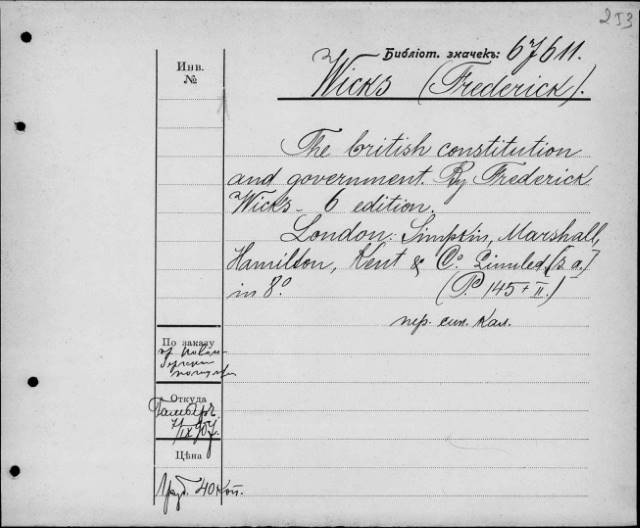 253
Библіот. значекъ: 67611.
Инв.
№
Wicks (Frederick).
The british constitution
and government. By Frederick
Wicks - 6 edition.
London: Simpkin, Marshall,
Hamilton, Kent & Cº. Limited. [s. a.]
in 8º. (P. 145 + II.)
пер. син. кал.
По заказу
Откуда
7/IX 907.
Цѣна
1 руб. 40 коп.